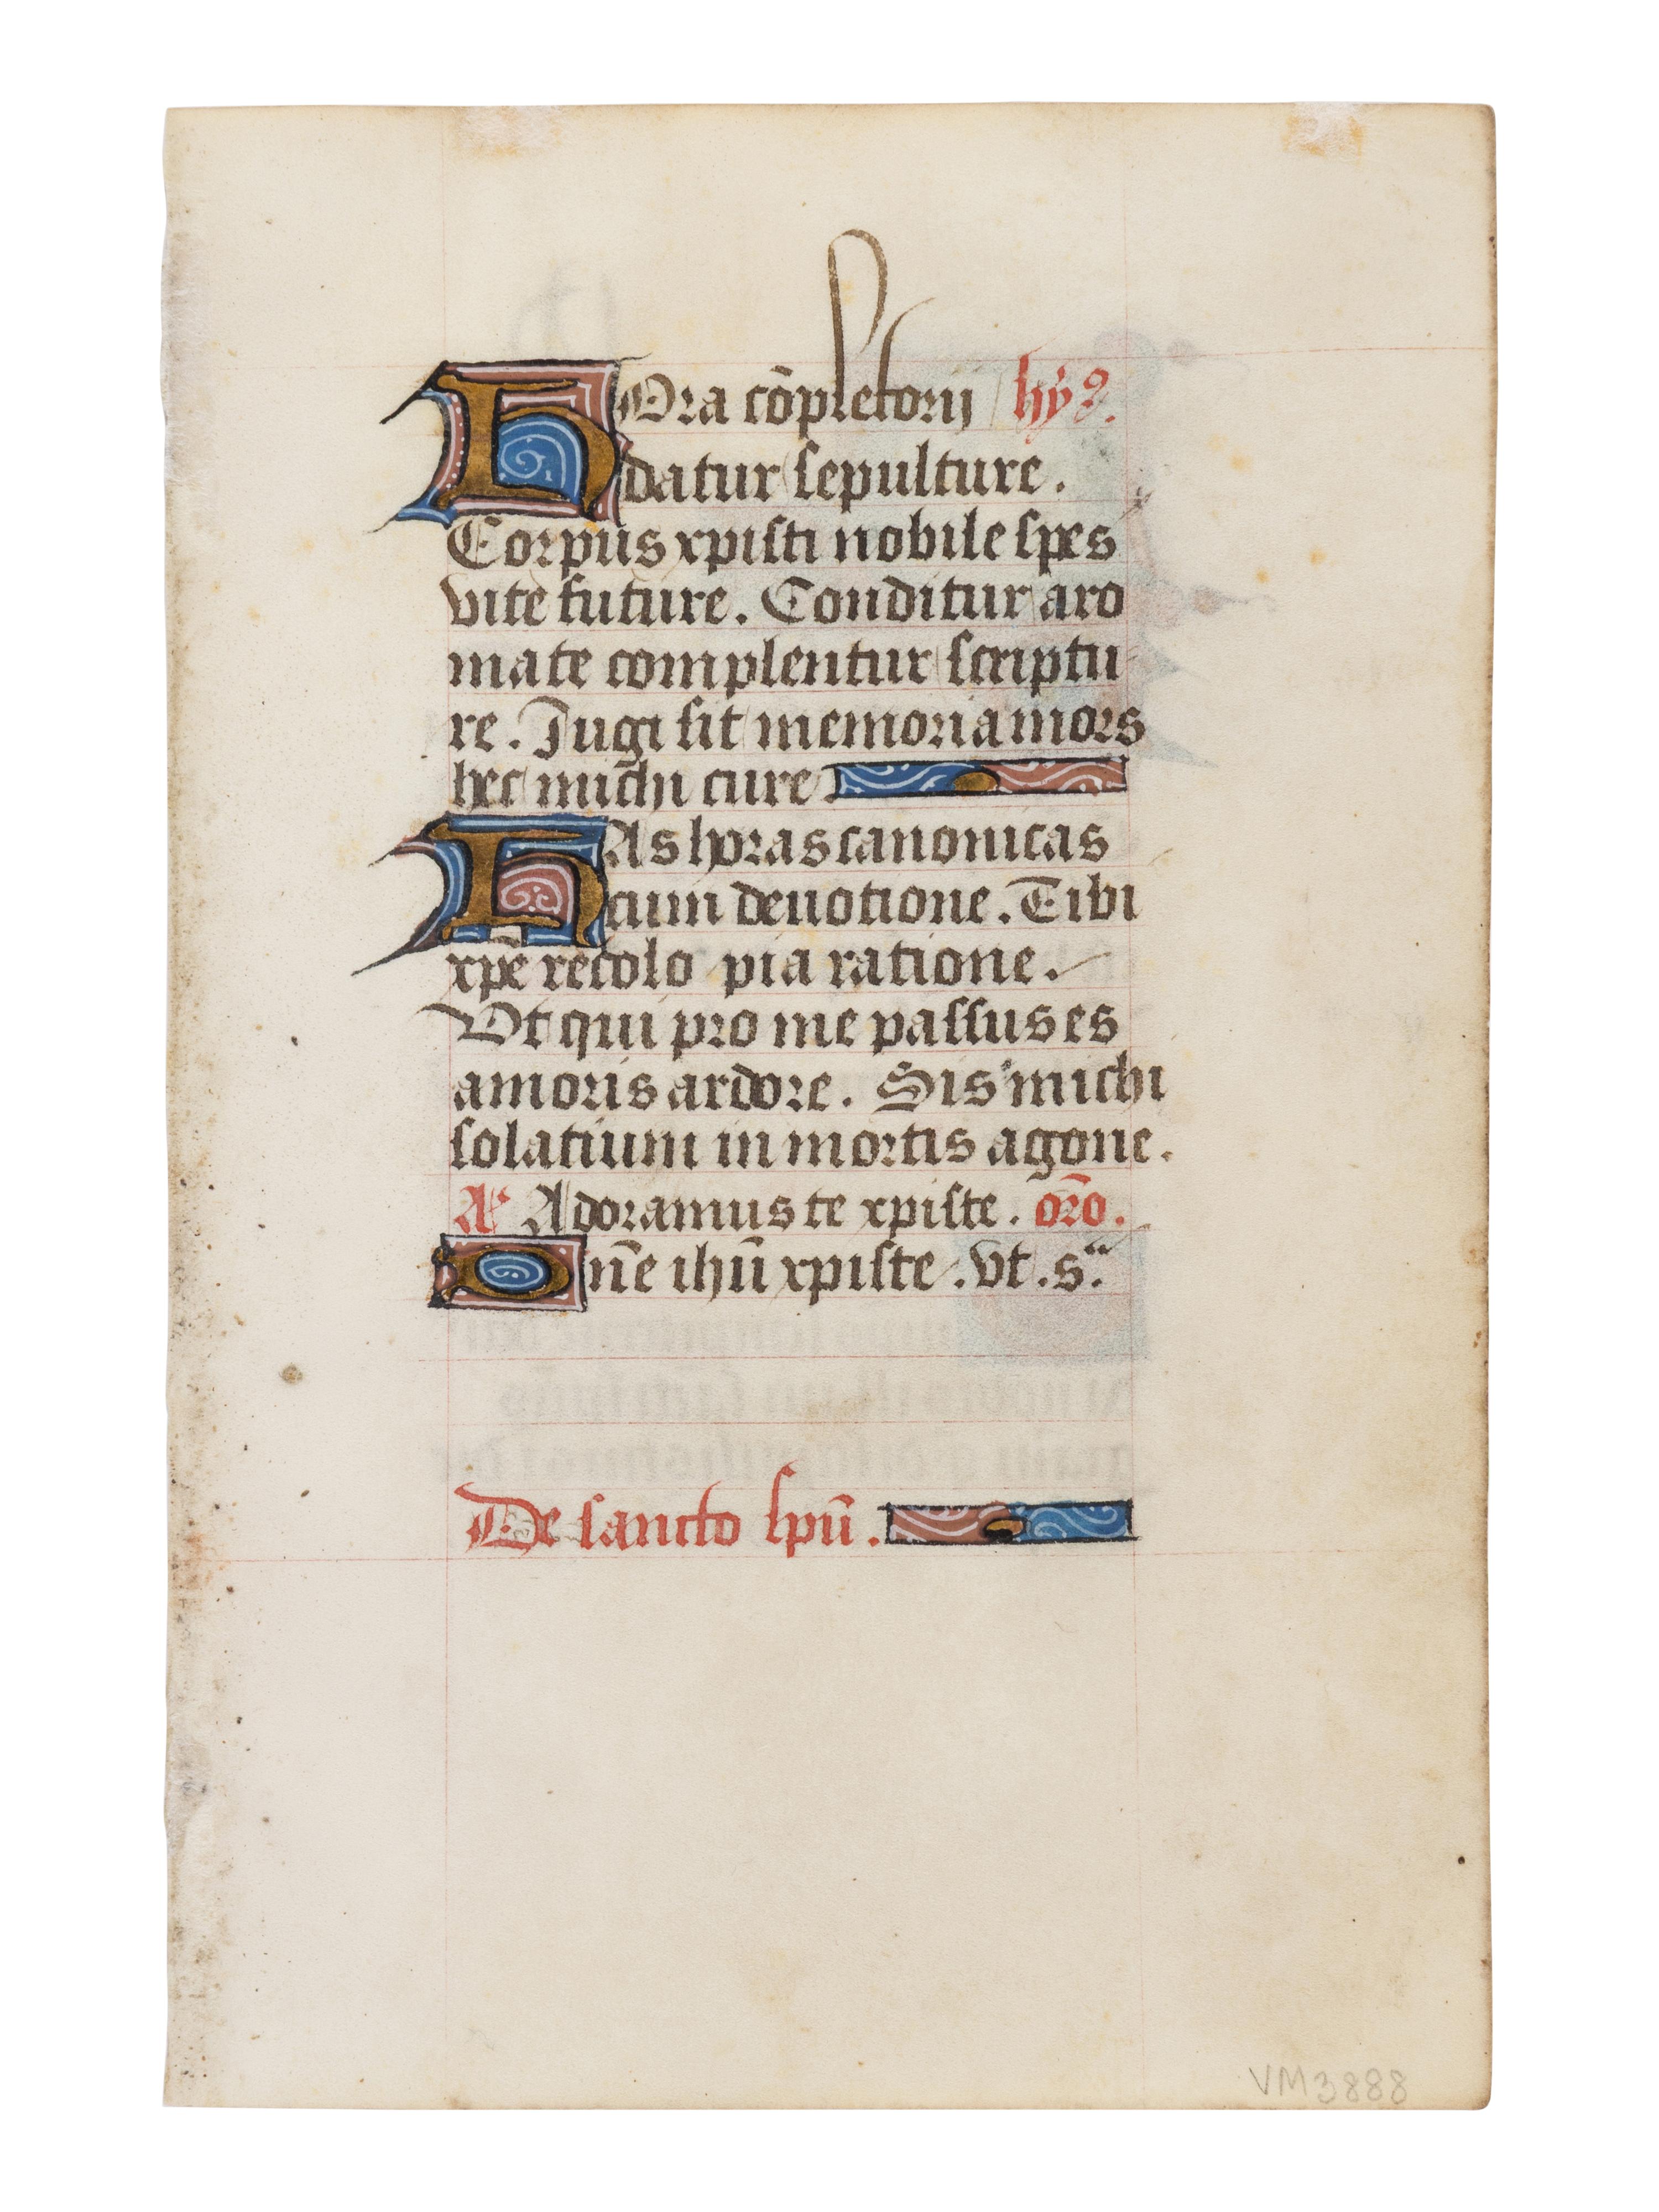 HOra cōpletorij hy9.
datur sepulture.
Corpus xpisti nobile spes
vite future. Conditur aro
mate complentur scriptu
re. Iugi sit memoria mors
hec michi cure.
HAs horas canonicas
cum deuotione. Tibi
xpē recolo pia ratione.
Vt qui pro me passus es
amoris ardore. Sis michi
solatium in mortis agone.
A Adoramus te xpiste. oro.
Dn̄e ihū xpiste. vt. s.
De sancto spū.
VM3888